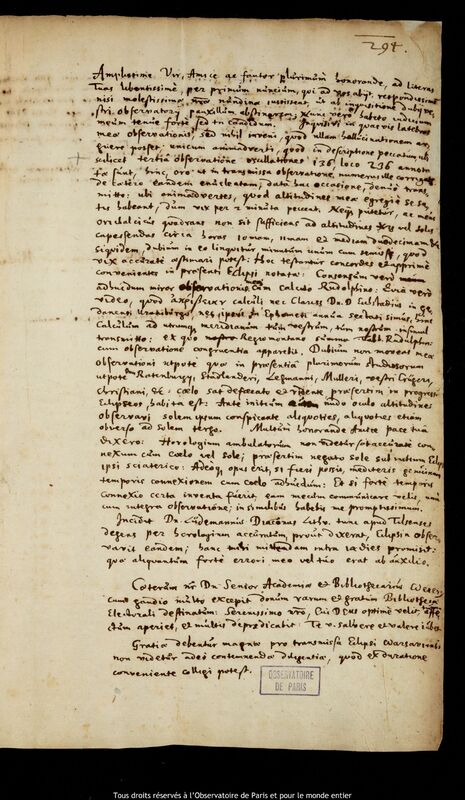 294.
Amplissime Vir, Amice ac fautor plurimum honorande, ad literas
tuas libentissime, per primum nuncium, qui ad vos abyt, respondissem
nisi molestissimæ nundinæ obstitissent, ut ab inquisitione
observator, pauxillum abstinerem. Nunc vero habeto
meum tenue forte sed tn candidum. Inquisivi in quasvis latebras
meæ observationis, sed nihil inveni, quod ullam hallucinationem ar-
guere posset, unicum animadverti, quod in descriptione peccatum,
scilicet tertia observatione 136 loco 236 annota-
ta sunt, hinc, oro ut in transmissa observatione numerus ille corrigatur
de cætero eandem data hac occasione, denuo trans-
mitto: ubi animadvertes, quod altitudines meæ egregie se
habeant, dum vix per 2 minuta peccent. Neque putetur, ac meus
orichalcicus quadrans non sit sufficiens ad altitudines vel
capessendas circa horas 10mam, 11mam et mediam duodecimam
siquidem, dubium in eo linquitur minutum unum cum semisse, quod
vix accurate æstimari potest: Hoc testantur concordes et apprime
convenientes in præsenti Eclipsi notatæ: Consensum vero
adhucdum miror cum calculo Rudolphino. Quia vero
video, quod calculi nec Clariss. Dn. D. Eichstadius in Ge-
danensi Uraniburgo, nec ipsius in Ephemeri annua
Calculum ad utrumque meridianum tum vestrum, tum nostrum simul
transmitto: ex quo Regiomontano summa Tabb. Rudolphin.
cum observatione congruentia apparebit. Dubium non moveat mea
observationi utpote quæ in præsentia plurimorum Auditorum
utpote Ratenburgy, Stadlenderi, Lepmanni, Mulleri, vestri Crügeri,
Christiani, &c. cœlo sat defæcato et ridente præsertim in progressu
Eclipseos, habita est: Ante initium nudo oculo altitudines
observavi solem ipsum conspicante aliquoties, aliquoties etiam
obverso ad solem tergo. Multum honorande Amice pace tua
dixero: Horologium ambulatorium non videtur sat accurate con-
nexum cum cœlo vel Sole; præsertim negato sole sub initium Eclips.
ipsi sciaterico: Adeoque opus erit, si fieri possit, mediteris genuinam
temporis connexionem cum cœlo adhucdum: Et si forte temporis
Connexio certa inventa fuerit, eam mecum communicare velis, una
cum integra observatione; in similibus habebis me promptissimum.
Incidit Dn. Lüdemannus Diaconus Luth. tunc apud Tilsenses
degens per horologium accuratum, prout dixerat, Eclipsin obser-
varit eandem; hanc mihi mittendam intra 14 dies promisit:
quæ aliquantum forte errori meo vel tuo erat ab auxilio.
Cæterum nr Dn. Senior Academiæ et Bibliothecarius
cum gaudio multo excepit donum rarum et gratum Bibliothecæ
Electorali destinatum: Serenissimo vero, cui Deus optime velit,
aperiet, et multis deprædicabit. Te v. salvere et valere iubet
Gratiæ debentur magnæ pro transmissa Eclipsi Warsaviensi
non videtur adeo contemnenda diligentia, quod ex duratione
conveniente colligi potest.
OBSERVATOIRE
DE PARIS
Tous droits réservés à l'Observatoire de Paris et pour le monde entier